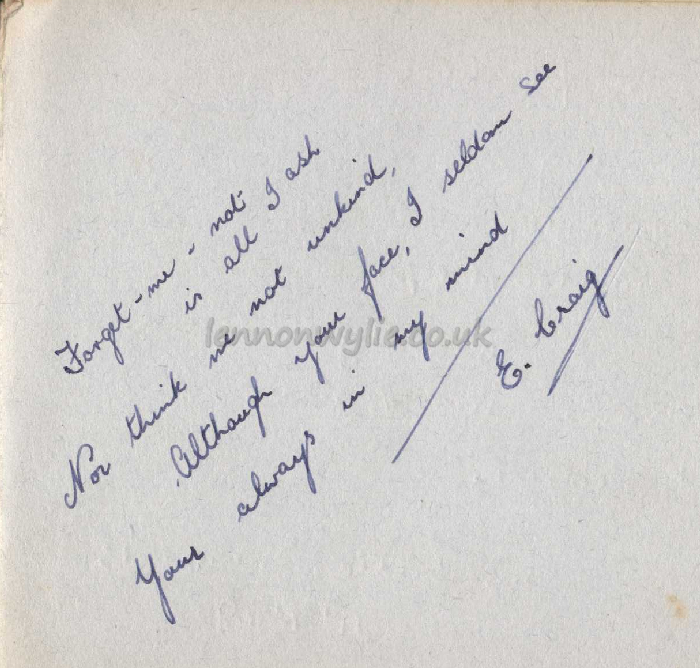 Forget-me-not I ask
is all
Nor think me not unkind,
Although your face, I seldom see
Your always in my mind
E. Craig
lennonwylie.co.uk